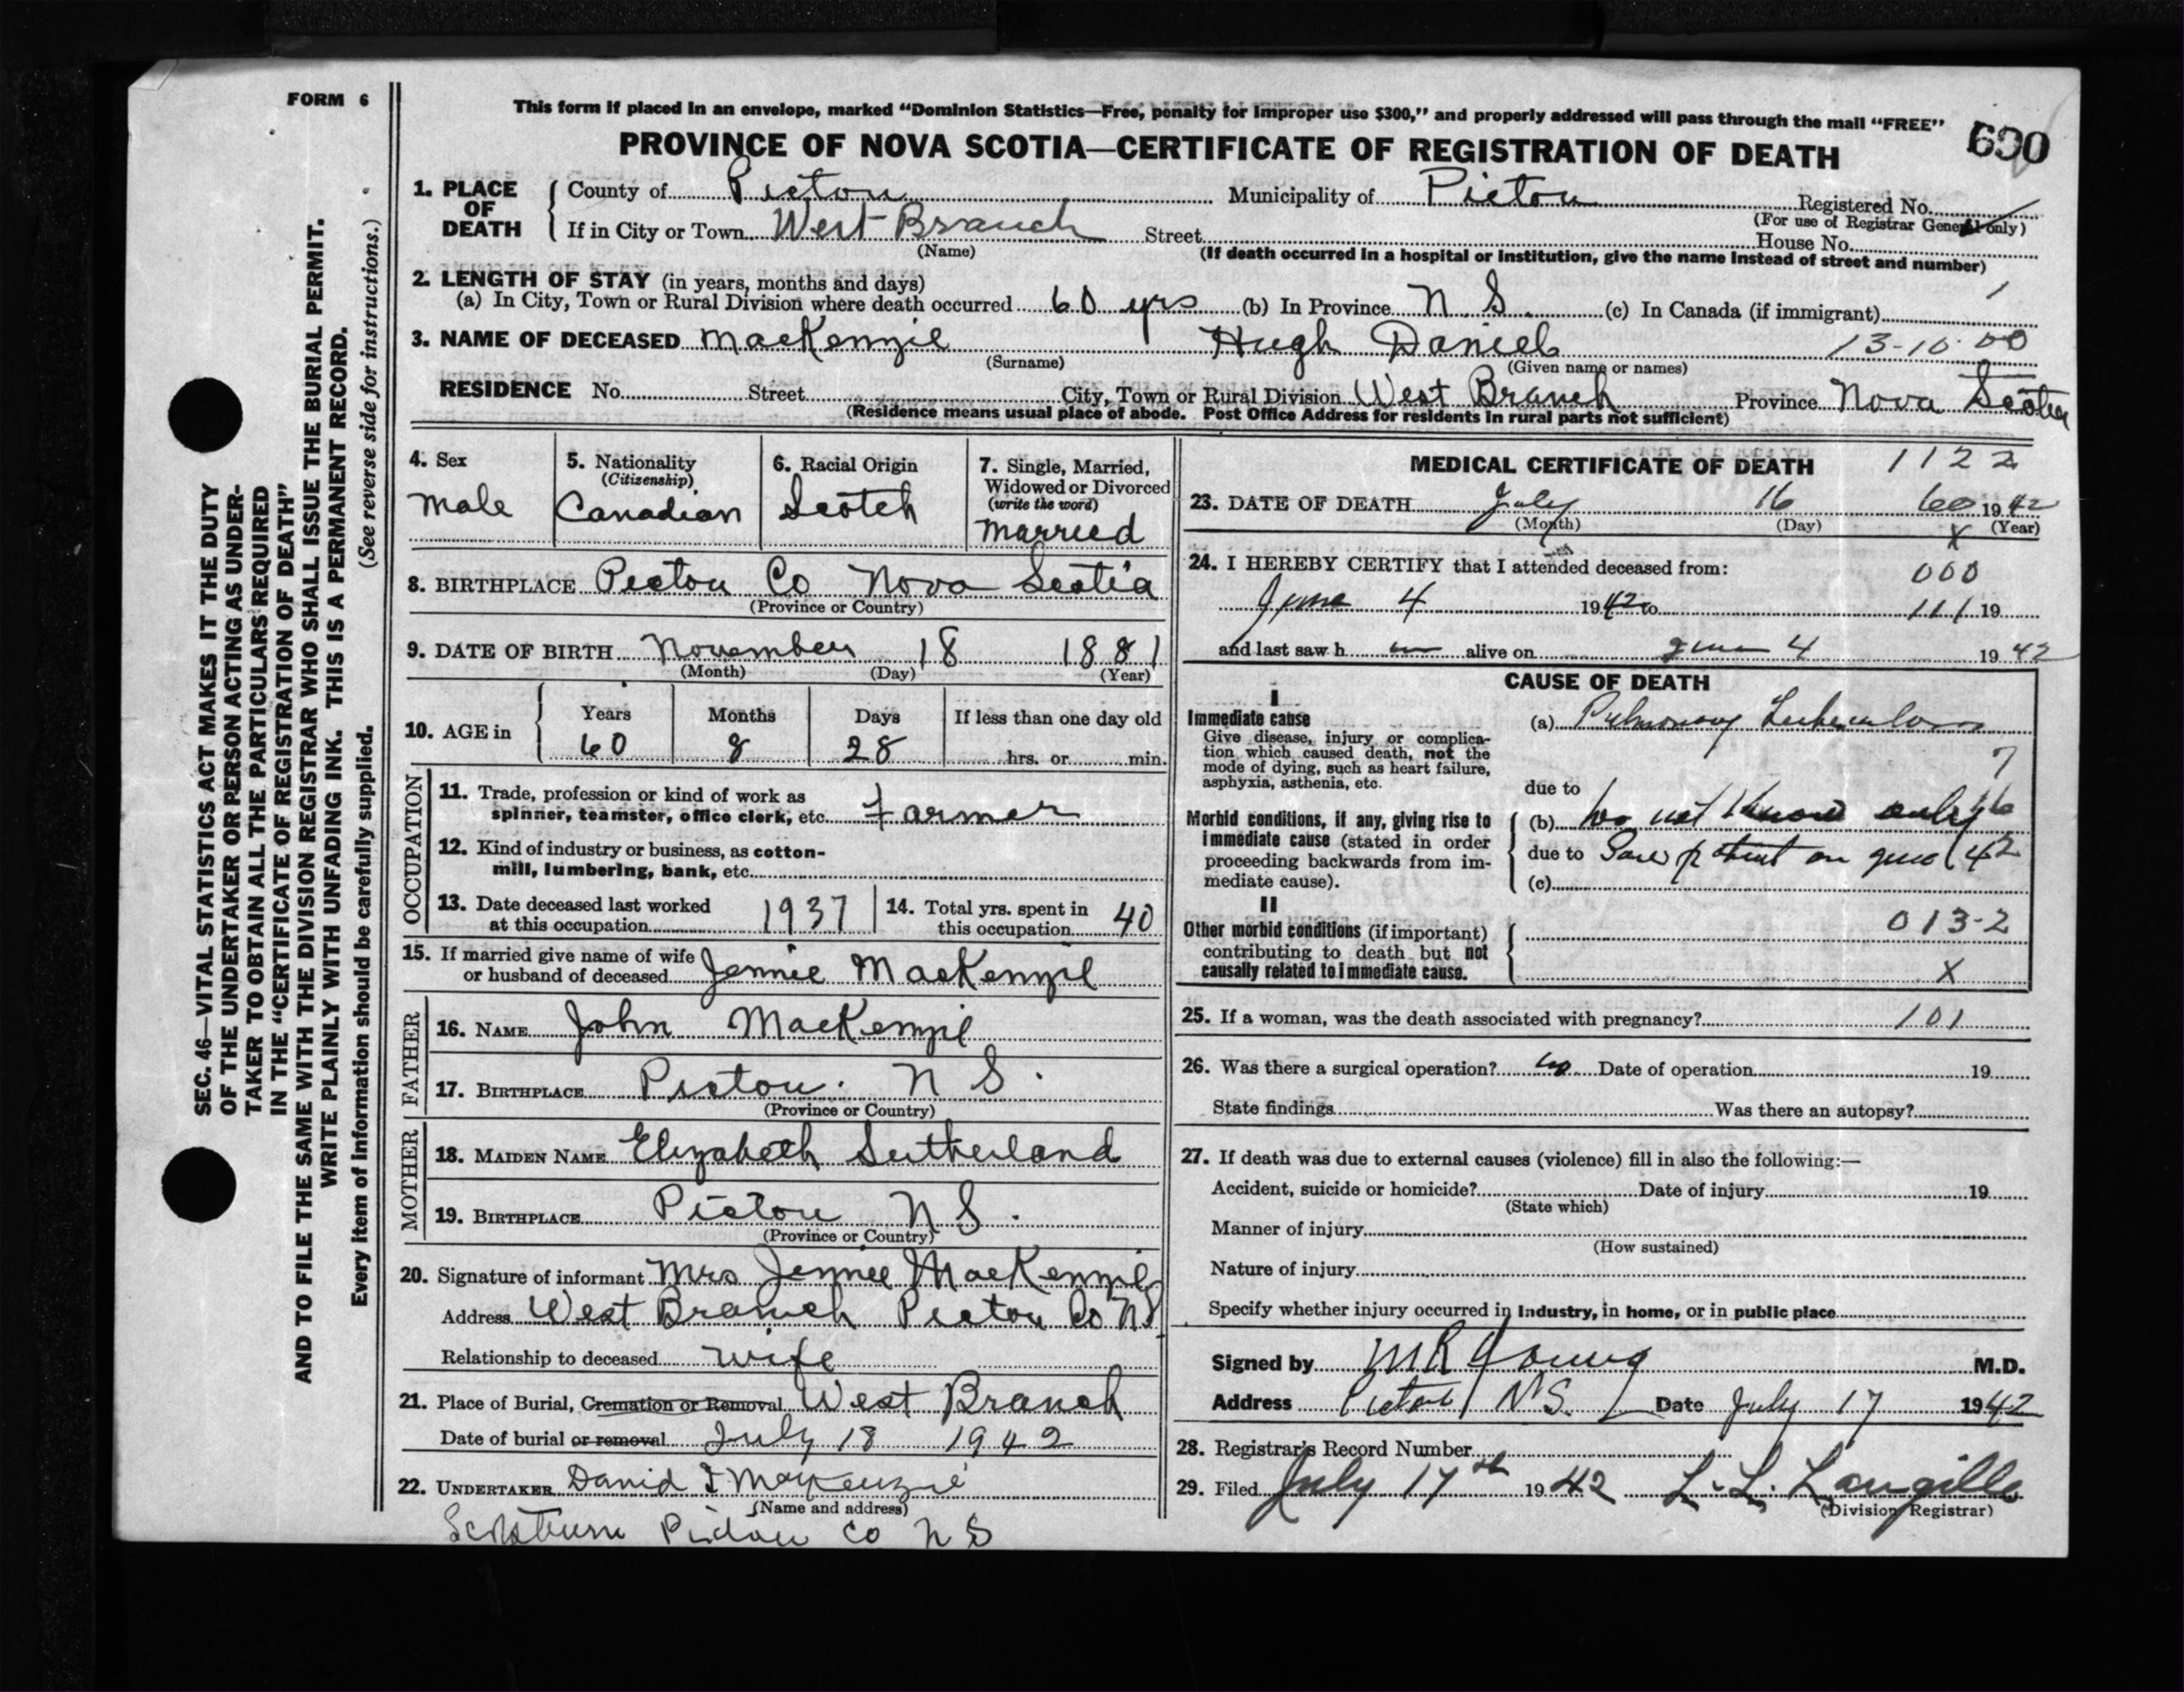 FORM 6
This form if placed in an envelope, marked "Dominion Statistics—Free, penalty for improper use $300," and properly addressed will pass through the mail "FREE"
PROVINCE OF NOVA SCOTIA—CERTIFICATE OF REGISTRATION OF DEATH
690
1. PLACE OF DEATH County of Pictou Municipality of Pictou Registered No.
(For use of Registrar General only)
If in City or Town West Branch Street House No.
(Name) (If death occurred in a hospital or institution, give the name instead of street and number)
2. LENGTH OF STAY (in years, months and days)
(a) In City, Town or Rural Division where death occurred 60 yrs (b) In Province N. S. (c) In Canada (if immigrant)
3. NAME OF DECEASED MacKenzie Hugh Daniel 13-10-00
(Surname) (Given name or names)
RESIDENCE No. Street City, Town or Rural Division West Branch Province Nova Scotia
(Residence means usual place of abode. Post Office Address for residents in rural parts not sufficient)
4. Sex
male
5. Nationality
(Citizenship)
Canadian
6. Racial Origin
Scotch
7. Single, Married,
Widowed or Divorced
(write the word)
married
8. BIRTHPLACE Pictou Co Nova Scotia
(Province or Country)
9. DATE OF BIRTH November 18 1881
(Month) (Day) (Year)
10. AGE in Years Months Days If less than one day old
60 8 28 hrs. or min.
OCCUPATION
11. Trade, profession or kind of work as
spinner, teamster, office clerk, etc. Farmer
12. Kind of industry or business, as cotton-
mill, lumbering, bank, etc.
13. Date deceased last worked
at this occupation 1937
14. Total yrs. spent in
this occupation 40
15. If married give name of wife
or husband of deceased Jennie MacKenzie
FATHER
16. NAME John MacKenzie
17. BIRTHPLACE Pictou. N S.
(Province or Country)
MOTHER
18. MAIDEN NAME Elizabeth Sutherland
19. BIRTHPLACE Pictou N S.
(Province or Country)
20. Signature of informant Mrs Jennie MacKenzie
Address West Branch Pictou Co NS
Relationship to deceased wife
21. Place of Burial, Cremation or Removal West Branch
Date of burial or removal July 18 1942
22. UNDERTAKER David F MacKenzie
(Name and address)
Scotsburn Pictou Co N S
MEDICAL CERTIFICATE OF DEATH 1122
23. DATE OF DEATH July 16 60 1942
(Month) (Day) x (Year)
24. I HEREBY CERTIFY that I attended deceased from: 000
June 4 1942 to 111 19
and last saw h im alive on June 4 1942
CAUSE OF DEATH
I
Immediate cause
Give disease, injury or complica-
tion which caused death, not the
mode of dying, such as heart failure,
asphyxia, asthenia, etc.
(a) Pulmonary Tuberculosis
7
due to
Morbid conditions, if any, giving rise to
immediate cause (stated in order
proceeding backwards from im-
mediate cause).
(b) Do not know only
due to Saw patient on June 42
(c)
II
Other morbid conditions (if important)
contributing to death but not
causally related to immediate cause.
013-2
X
25. If a woman, was the death associated with pregnancy? 101
26. Was there a surgical operation? no Date of operation 19
State findings Was there an autopsy?
27. If death was due to external causes (violence) fill in also the following:—
Accident, suicide or homicide? Date of injury 19
(State which)
Manner of injury
(How sustained)
Nature of injury
Specify whether injury occurred in industry, in home, or in public place
Signed by M R Young M.D.
Address Pictou N.S. Date July 17 1942
28. Registrar's Record Number
29. Filed July 17th 1942 L. L. Langille
(Division Registrar)
SEC. 46—VITAL STATISTICS ACT MAKES IT THE DUTY
OF THE UNDERTAKER OR PERSON ACTING AS UNDER-
TAKER TO OBTAIN ALL THE PARTICULARS REQUIRED
IN THE "CERTIFICATE OF REGISTRATION OF DEATH"
AND TO FILE THE SAME WITH THE DIVISION REGISTRAR WHO SHALL ISSUE THE BURIAL PERMIT.
WRITE PLAINLY WITH UNFADING INK. THIS IS A PERMANENT RECORD.
Every item of information should be carefully supplied. (See reverse side for instructions.)